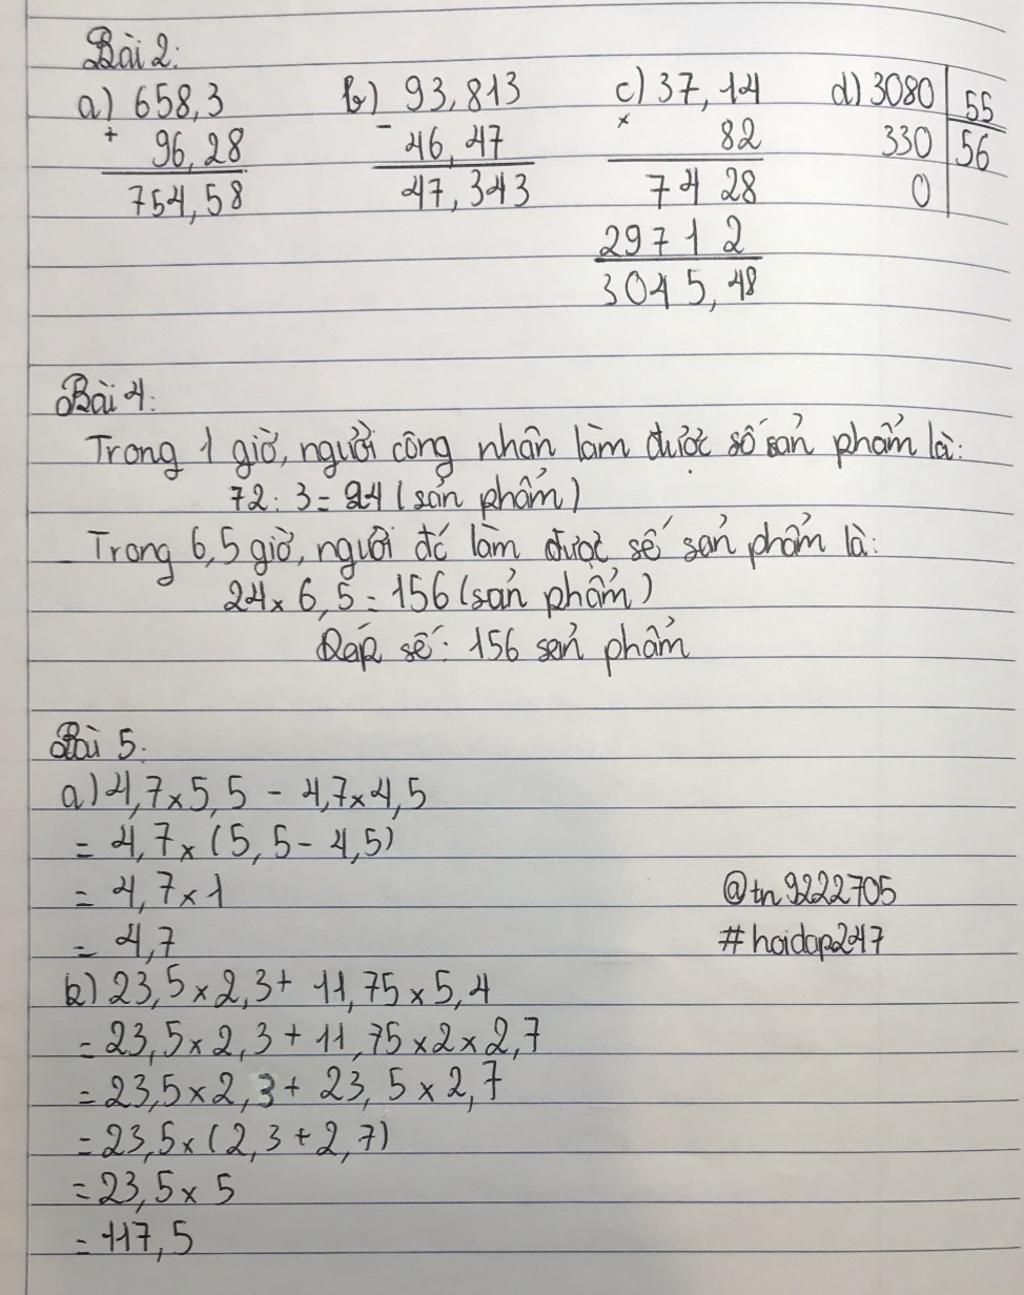 Bài 2:
a) 658,3 b) 93,813 c) 37,14 d) 3080 55
+ 96,28 - 46,47 x 82 330 56
754,58 47,343 7428 0
29712
3045,48
Bài 4:
Trong 1 giờ, người công nhân làm được số sản phẩm là:
72 : 3 = 24 (sản phẩm)
Trong 6,5 giờ, người đó làm được số sản phẩm là:
24 x 6,5 = 156 (sản phẩm)
Đáp số: 156 sản phẩm
Bài 5:
a) 4,7 x 5,5 - 4,7 x 4,5
= 4,7 x (5,5 - 4,5)
= 4,7 x 1
@tn9222705
= 4,7
#hoidap247
b) 23,5 x 2,3 + 11,75 x 5,4
= 23,5 x 2,3 + 11,75 x 2 x 2,7
= 23,5 x 2,3 + 23,5 x 2,7
= 23,5 x (2,3 + 2,7)
= 23,5 x 5
= 117,5